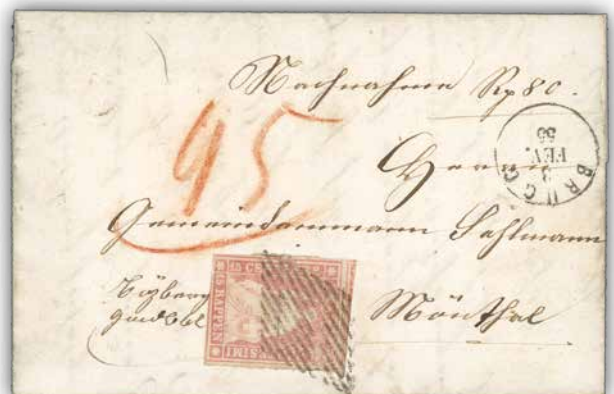 Nachnahme Rp 80.
95
BRUGG
FEV.
55
Herrn
Gemeindeammann Sehlmann
Mönthal
15 CS.
15 RAPPEN